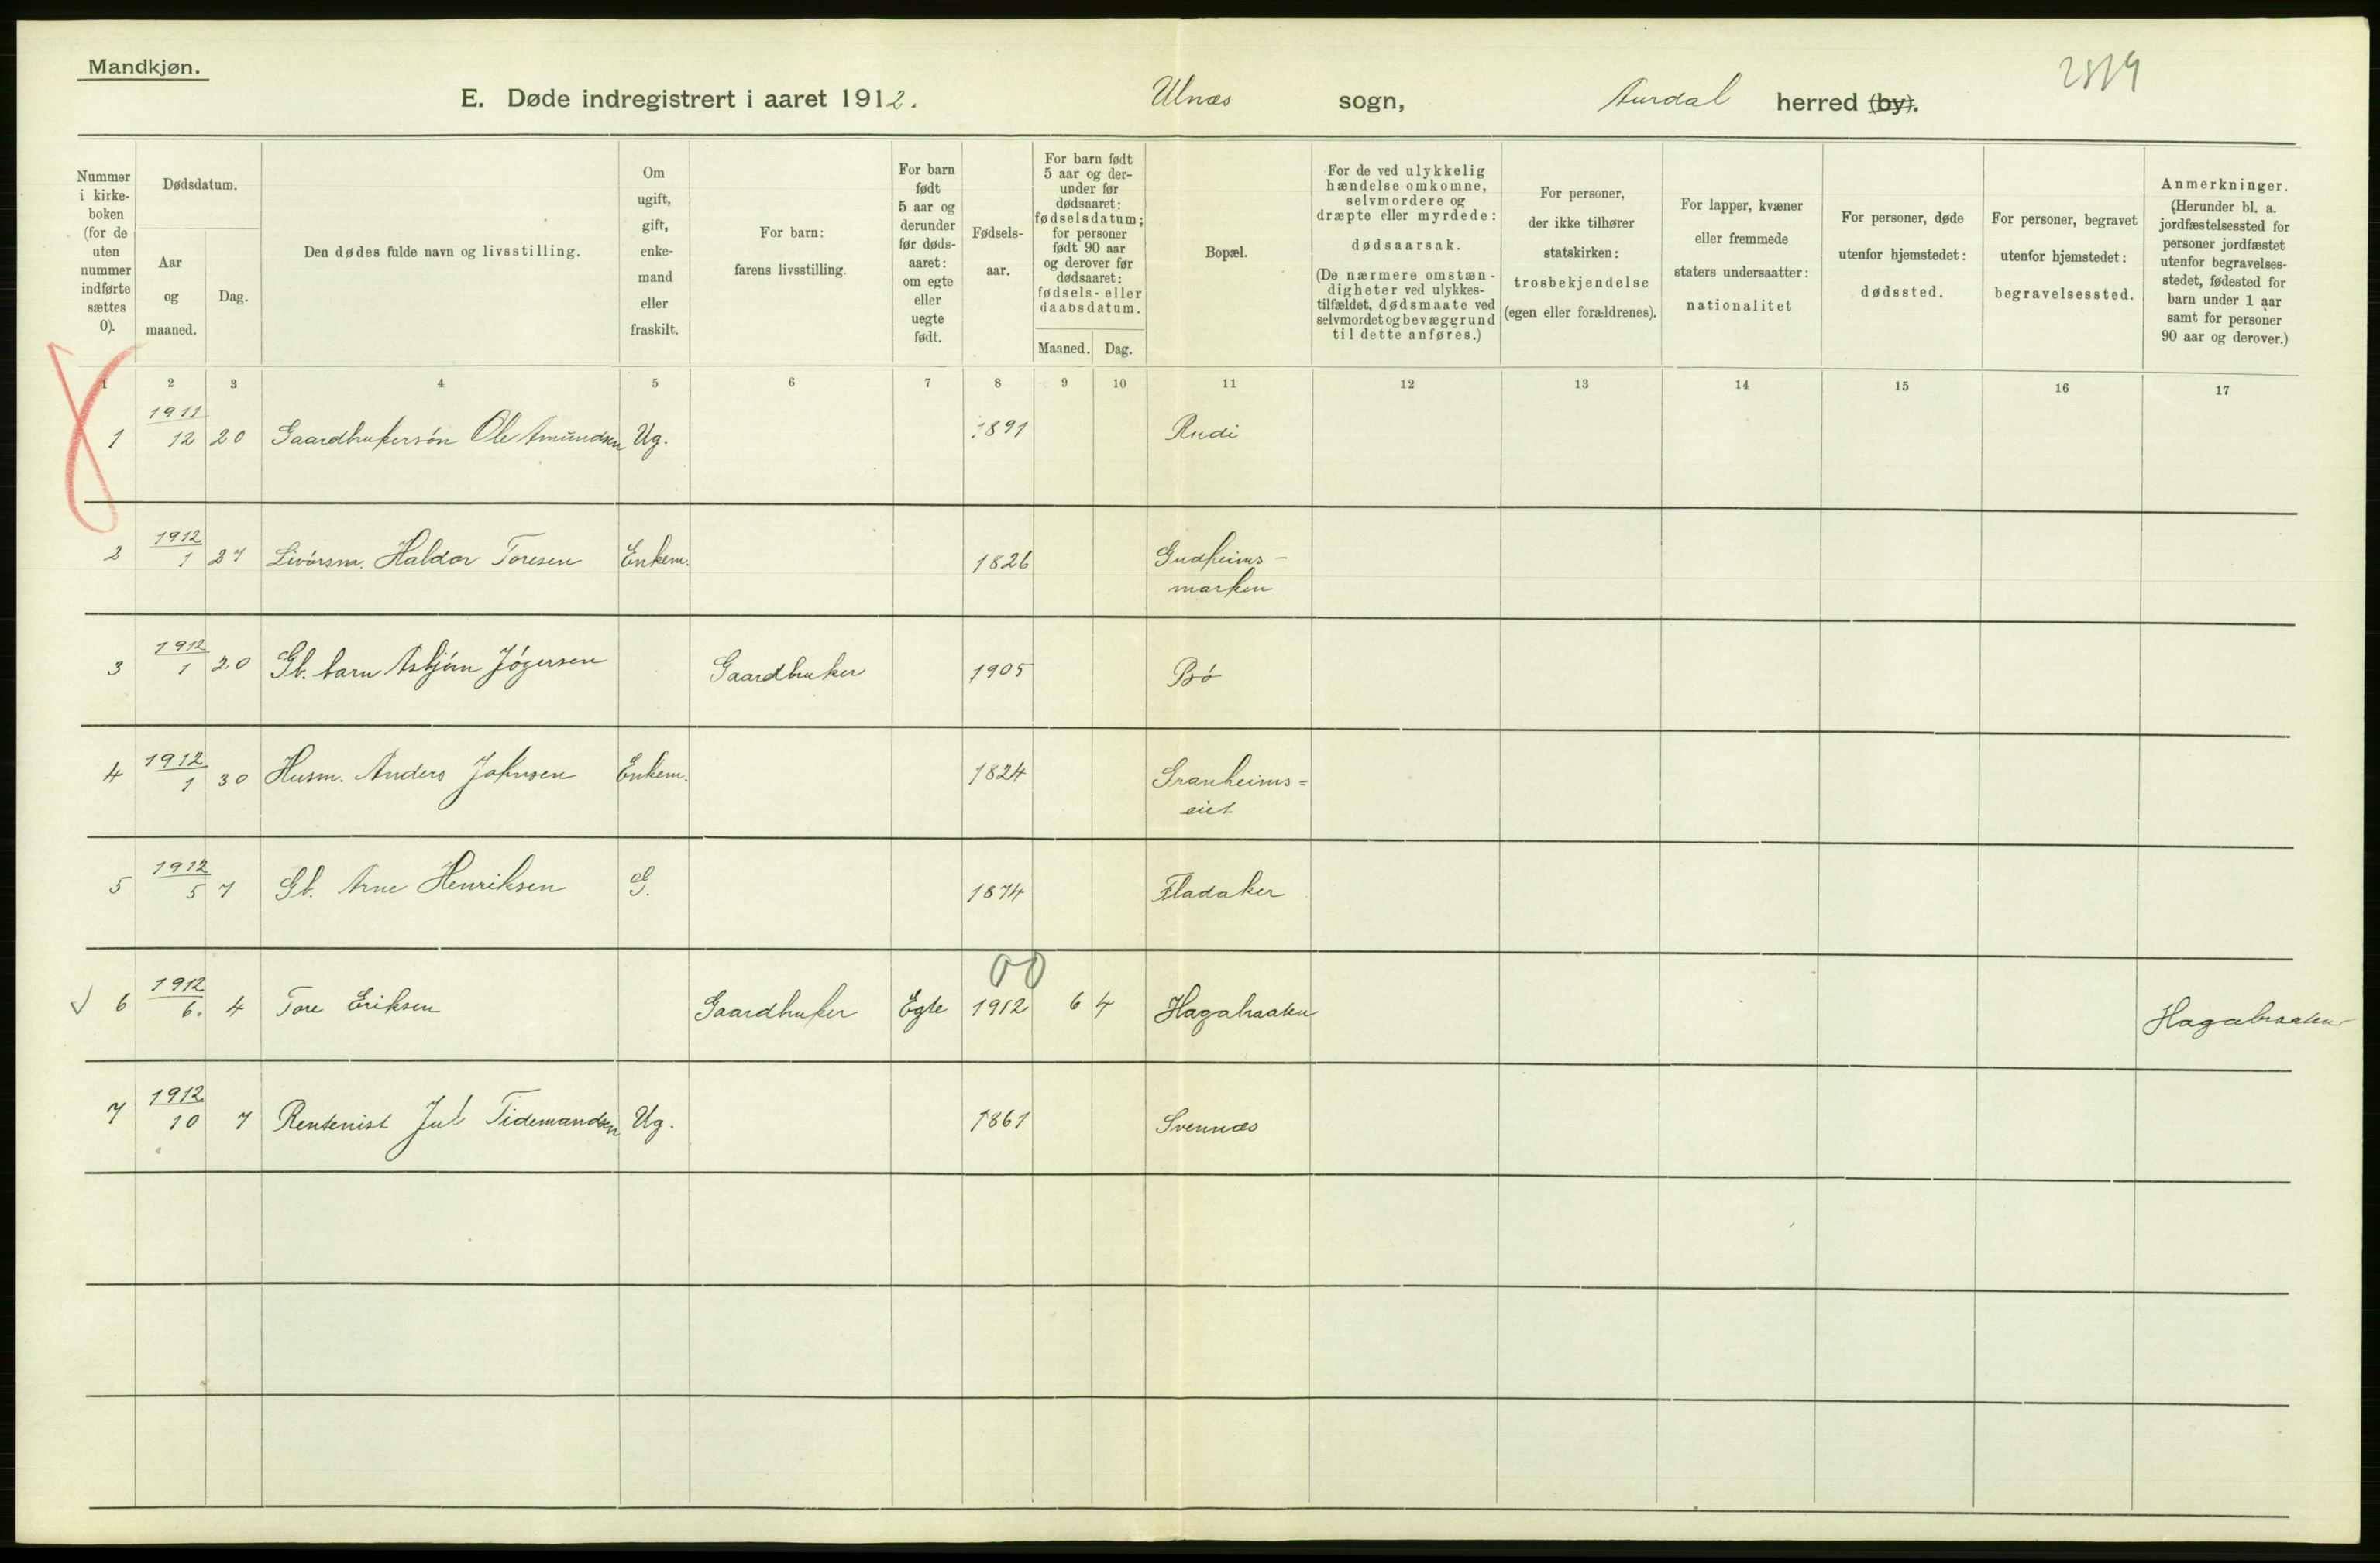 Mandkjøn.
2519
E. Døde indregistrert i aaret 1912. Ulnæs sogn, Aurdal herred (by).
Nummer i kirke- boken (for de uten nummer indførte sættes 0).
Dødsdatum.
Aar og maaned.
Dag.
Den dødes fulde navn og livsstilling.
Om ugift, gift, enke- mand eller fraskilt.
For barn: farens livsstilling.
For barn født 5 aar og derunder før døds- aaret: om egte eller uegte født.
Fødsels- aar.
For barn født 5 aar og der- under før dødsaaret: fødselsdatum; for personer født 90 aar og derover før dødsaaret: fødsels- eller daabsdatum.
Maaned. Dag.
Bopæl.
For de ved ulykkelig hændelse omkomne, selvmordere og dræpte eller myrdede: dødsaarsak. (De nærmere omstæn- digheter ved ulykkes- tilfældet, dødsmaate ved selvmordet og bevæggrund til dette anføres.)
For personer, der ikke tilhører statskirken: trosbekjendelse (egen eller forældrenes).
For lapper, kvæner eller fremmede staters undersaatter: nationalitet
For personer, døde utenfor hjemstedet: dødssted.
For personer, begravet utenfor hjemstedet: begravelsessted.
Anmerkninger. (Herunder bl. a. jordfæstelsessted for personer jordfæstet utenfor begravelses- stedet, fødested for barn under 1 aar samt for personer 90 aar og derover.)
1 2 3 4 5 6 7 8 9 10 11 12 13 14 15 16 17
1 1911 12 20 Gaardbrukersøn Ole Amundsen Ug. 1891 Rudi
2 1912 1 27 Livørsm. Haldor Toresen Enkem. 1826 Gudheims-
marken
3 1912 1 20 Gb. barn Asbjørn Jøgersen Gaardbruker 1905 Bø
4 1912 1 30 Husm. Anders Johnsen Enkem. 1824 Granheims=
eiet
5 1912 5 7 Gb. Arne Henriksen G. 1874 Fladaker
00
6 1912 6. 4 Tore Eriksen Gaardbruker Egte 1912 6 4 Hagabraaten Hagabraaten
7 1912 10 7 Rentenist Jul Tidemandsen Ug. 1861 Svennæs